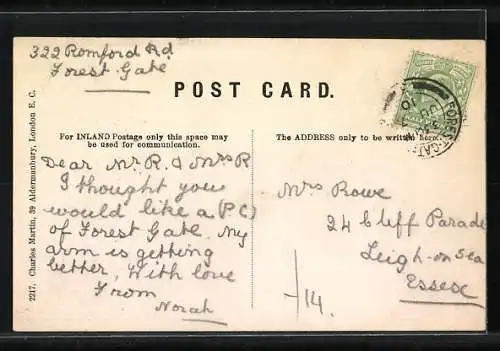 322 Romford Rd
Forest Gate
POST CARD.
For INLAND Postage only this space may
be used for communication.
The ADDRESS only to be written here.
Dear Mr R. & Mrs R
I thought you
would like a (P.C)
of Forest Gate. My
arm is getting
better, With love
From
Norah
Mrs Rowe
24 Cliff Parade
Leigh-on Sea
Essex
14.
2217. Charles Martin, 39 Aldermanbury, London E. C.
FOREST-GATE
10